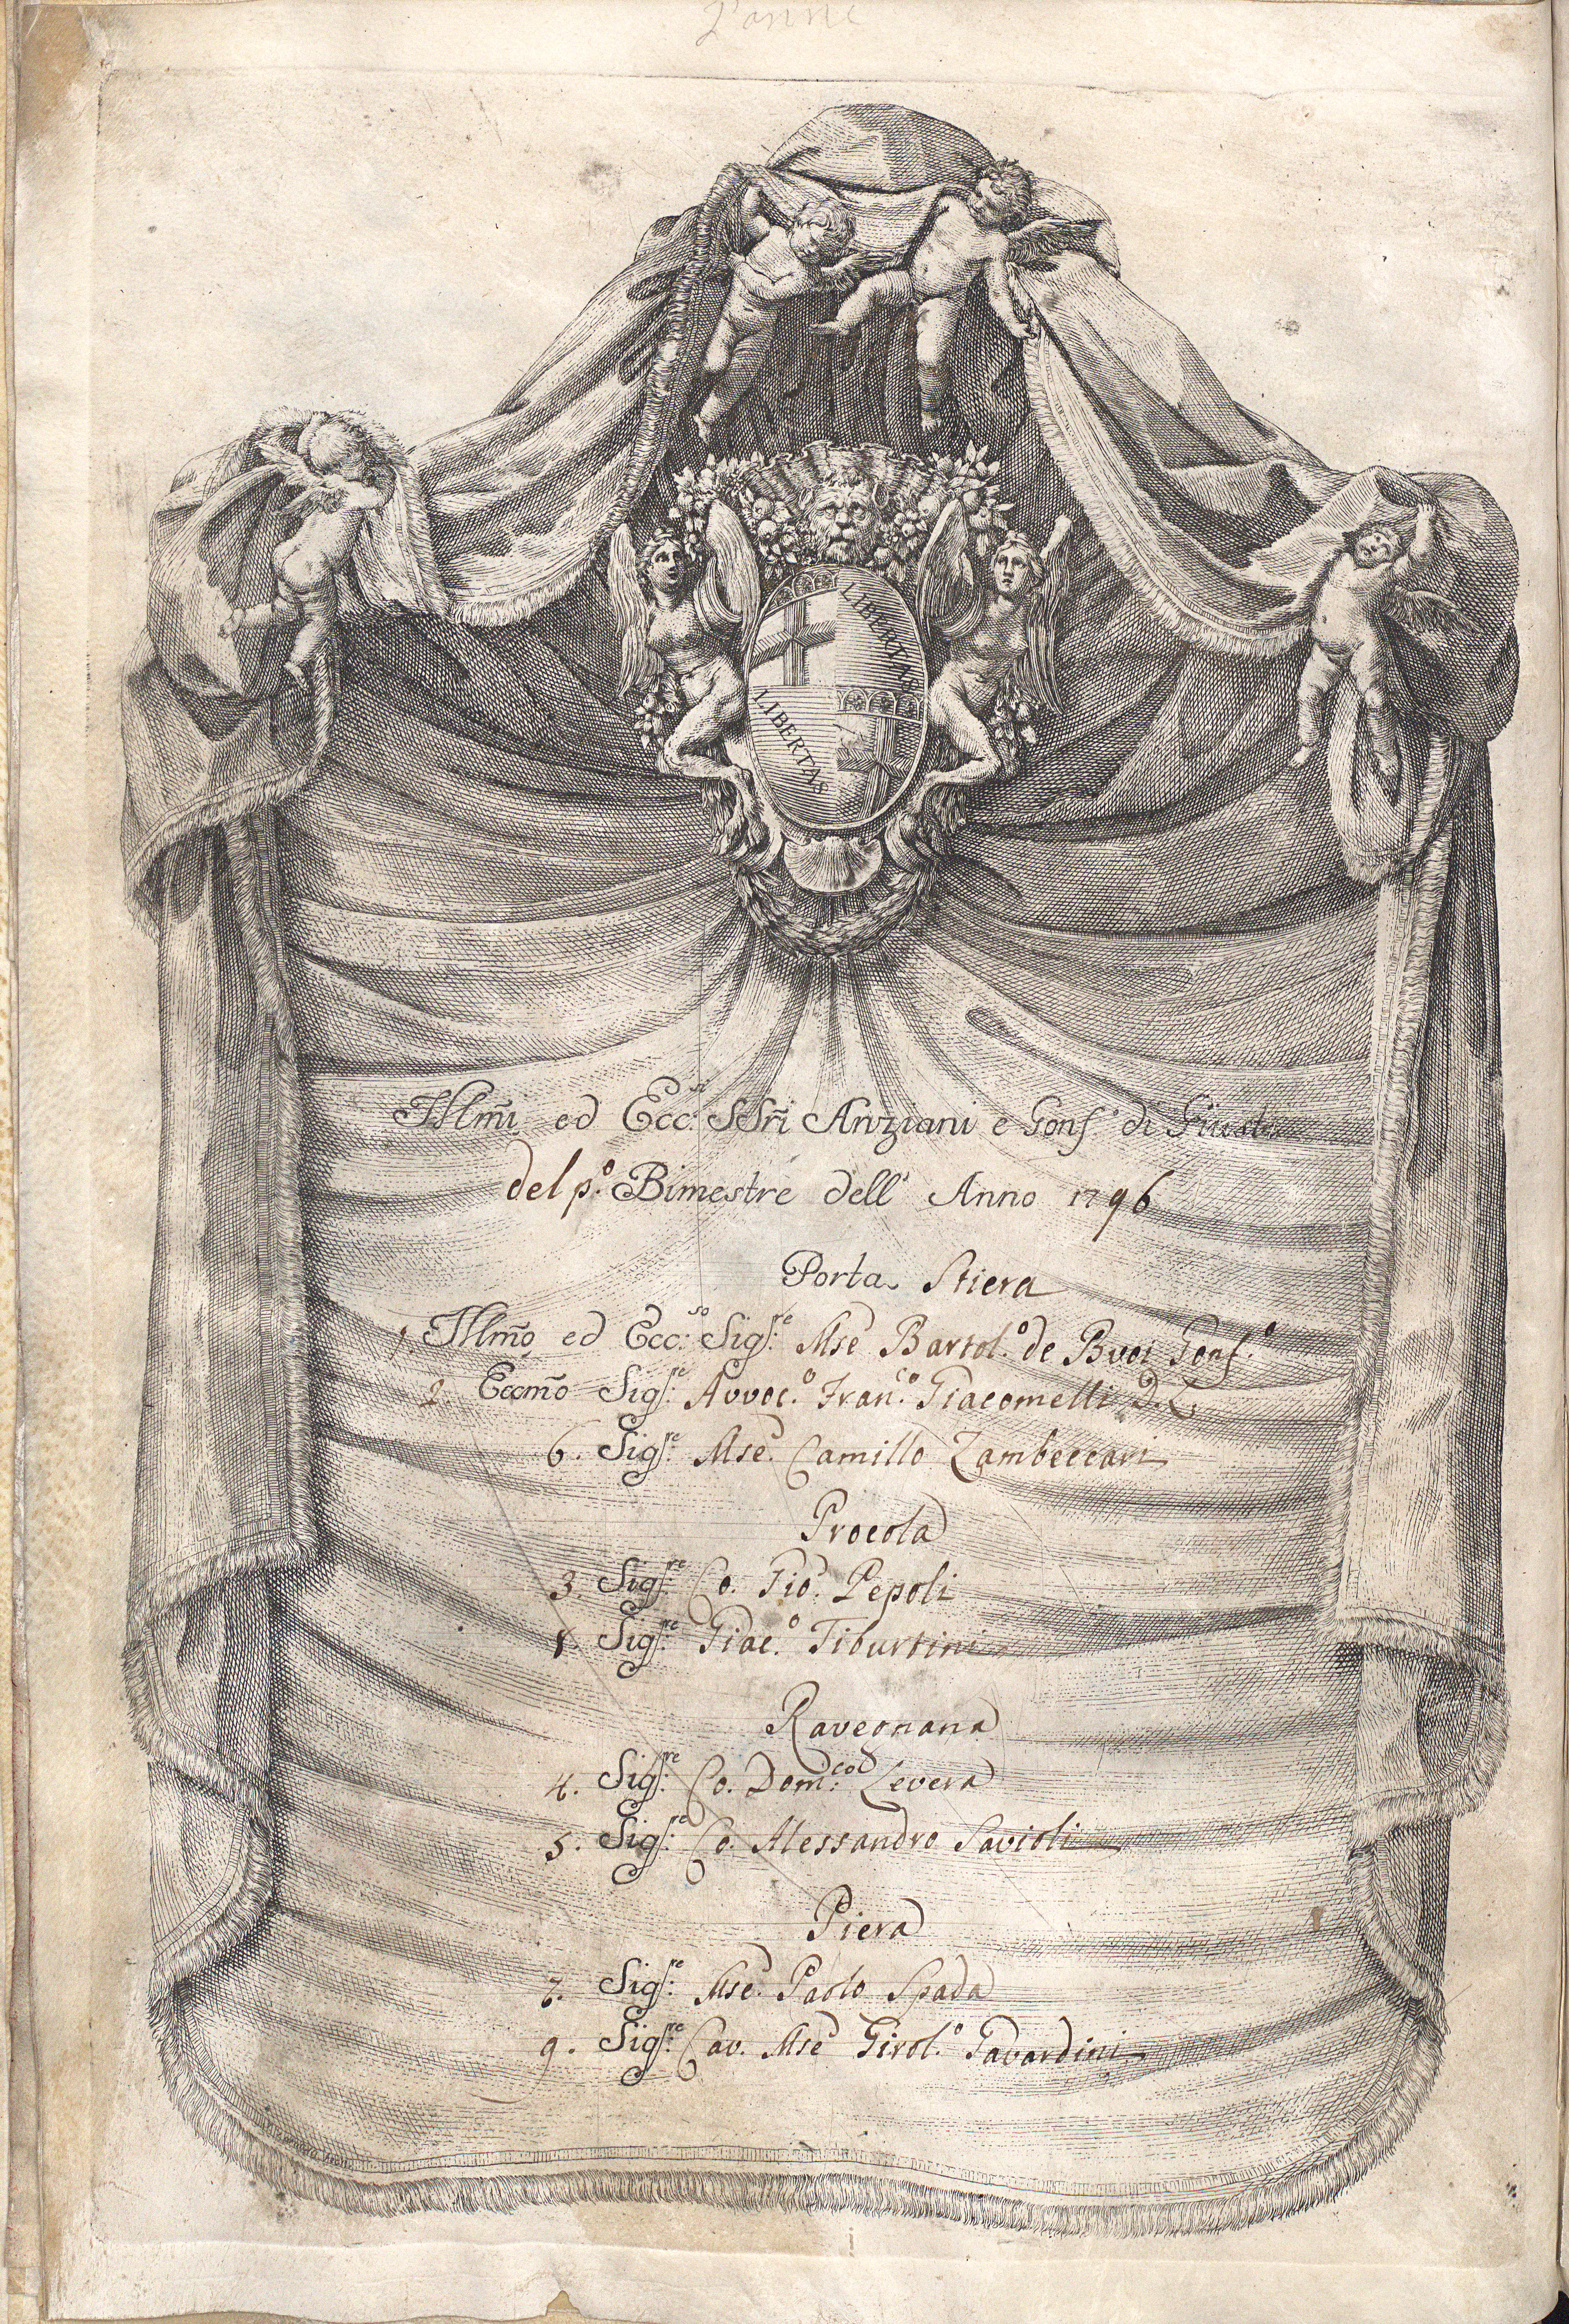 LIBERTAS
LIBERTAS
Illm̃i ed Ecc:si SSr̃i Anziani e Gonf.e di Giust.a
del p.o Bimestre dell' Anno 1796
Porta Stiera
1. Illm̃o ed Ecc:so Sig.re Mse Bartol.o de Buoi Gonf.e
2. Eccm̃o Sig.re Avvoc.o Fran.co Giacomelli D. L.
6. Sig.re Mse. Camillo Zambeccari
Procola
3. Sig.re Co. Gio. Pepoli
8. Sig.re Giac.o Tiburtini
Ravegnana
4. Sig.re Co. Dom:co Levera
5. Sig.re Co. Alessandro Savioli
Piera
7. Sig.re Mse. Paolo Spada
9. Sig.re Cav. Mse Girol.o Gavardini